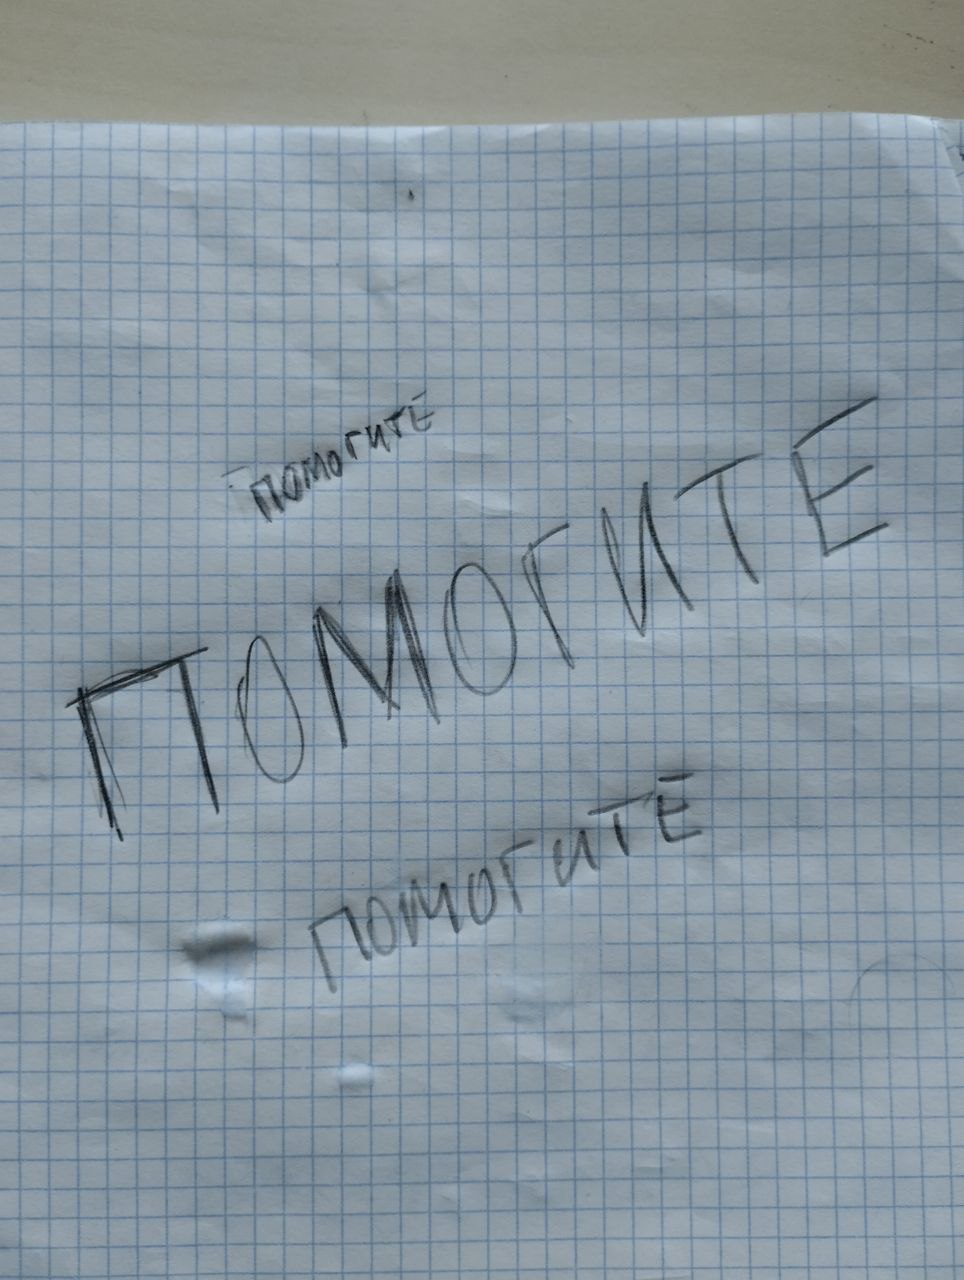 ПОМОГИТЕ
ПОМОГИТЕ
ПОМОГИТЕ